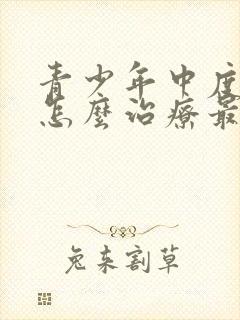 青少年中度
怎麼治療最
兔來割草